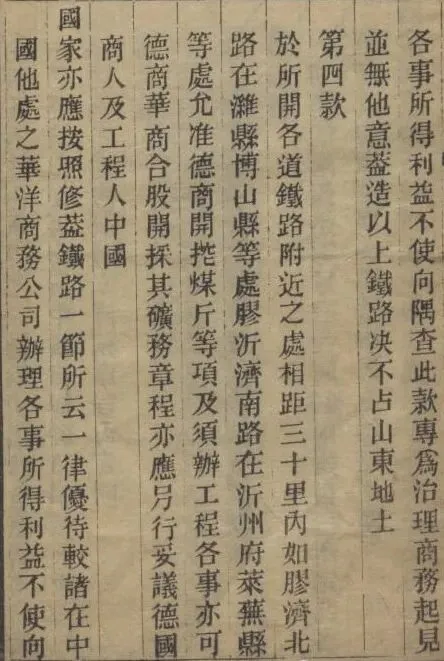 各事所得利益不使向隅查此款專爲治理商務起見
並無他意蓋造以上鐵路决不占山東地土
第四款
於所開各道鐵路附近之處相距三十里內如膠濟北
路在濰縣博山縣等處膠沂濟南路在沂州府萊蕪縣
等處允准德商開挖煤斤等項及須辦工程各事亦可
德商華商合股開採其礦務章程亦應另行妥議德國
商人及工程人中國
國家亦應按照修蓋鐵路一節所云一律優待較諸在中
國他處之華洋商務公司辦理各事所得利益不使向